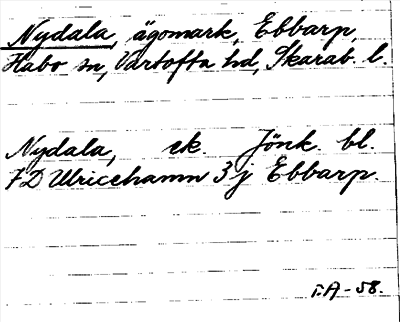 Nydala, ägomark, Ebbarp,
Habo sn, Vartofta hd, Skarab. l.
Nydala, ek. Jönk. bl.
7D Ulricehamn 3j Ebbarp.
I.A-58.